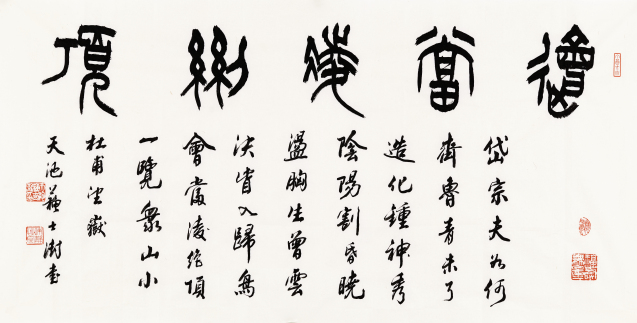 會當凌絕頂
岱宗夫如何
齊魯青未了
造化鍾神秀
陰陽割昏曉
盪胸生曾雲
決眥入歸鳥
會當凌絕頂
一覽衆山小
杜甫望嶽
天池蘇士澍書